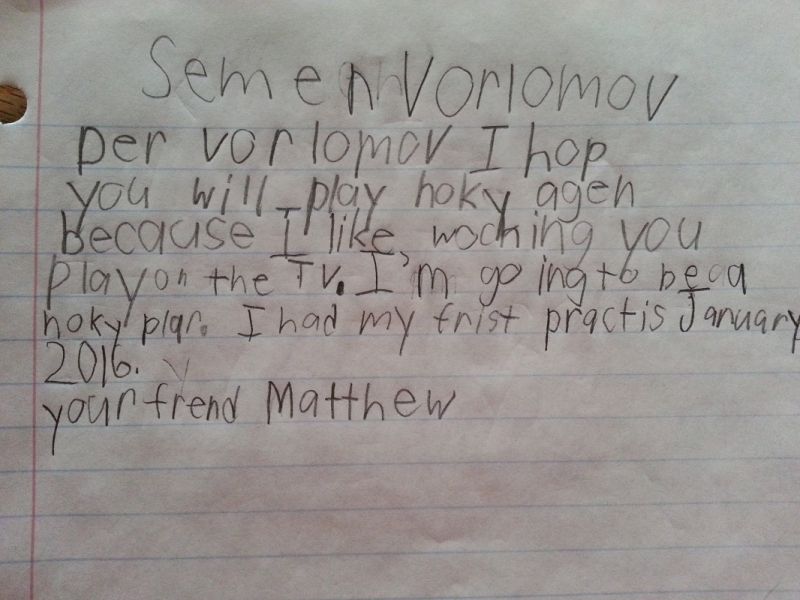 Semen Vorlomov
Der vorlomov I hop
you will play hoky agen
Because I like woching you
Play on the TV. I'm going to be a
hoky plar. I had my frist practis January
2016.
your frend Matthew